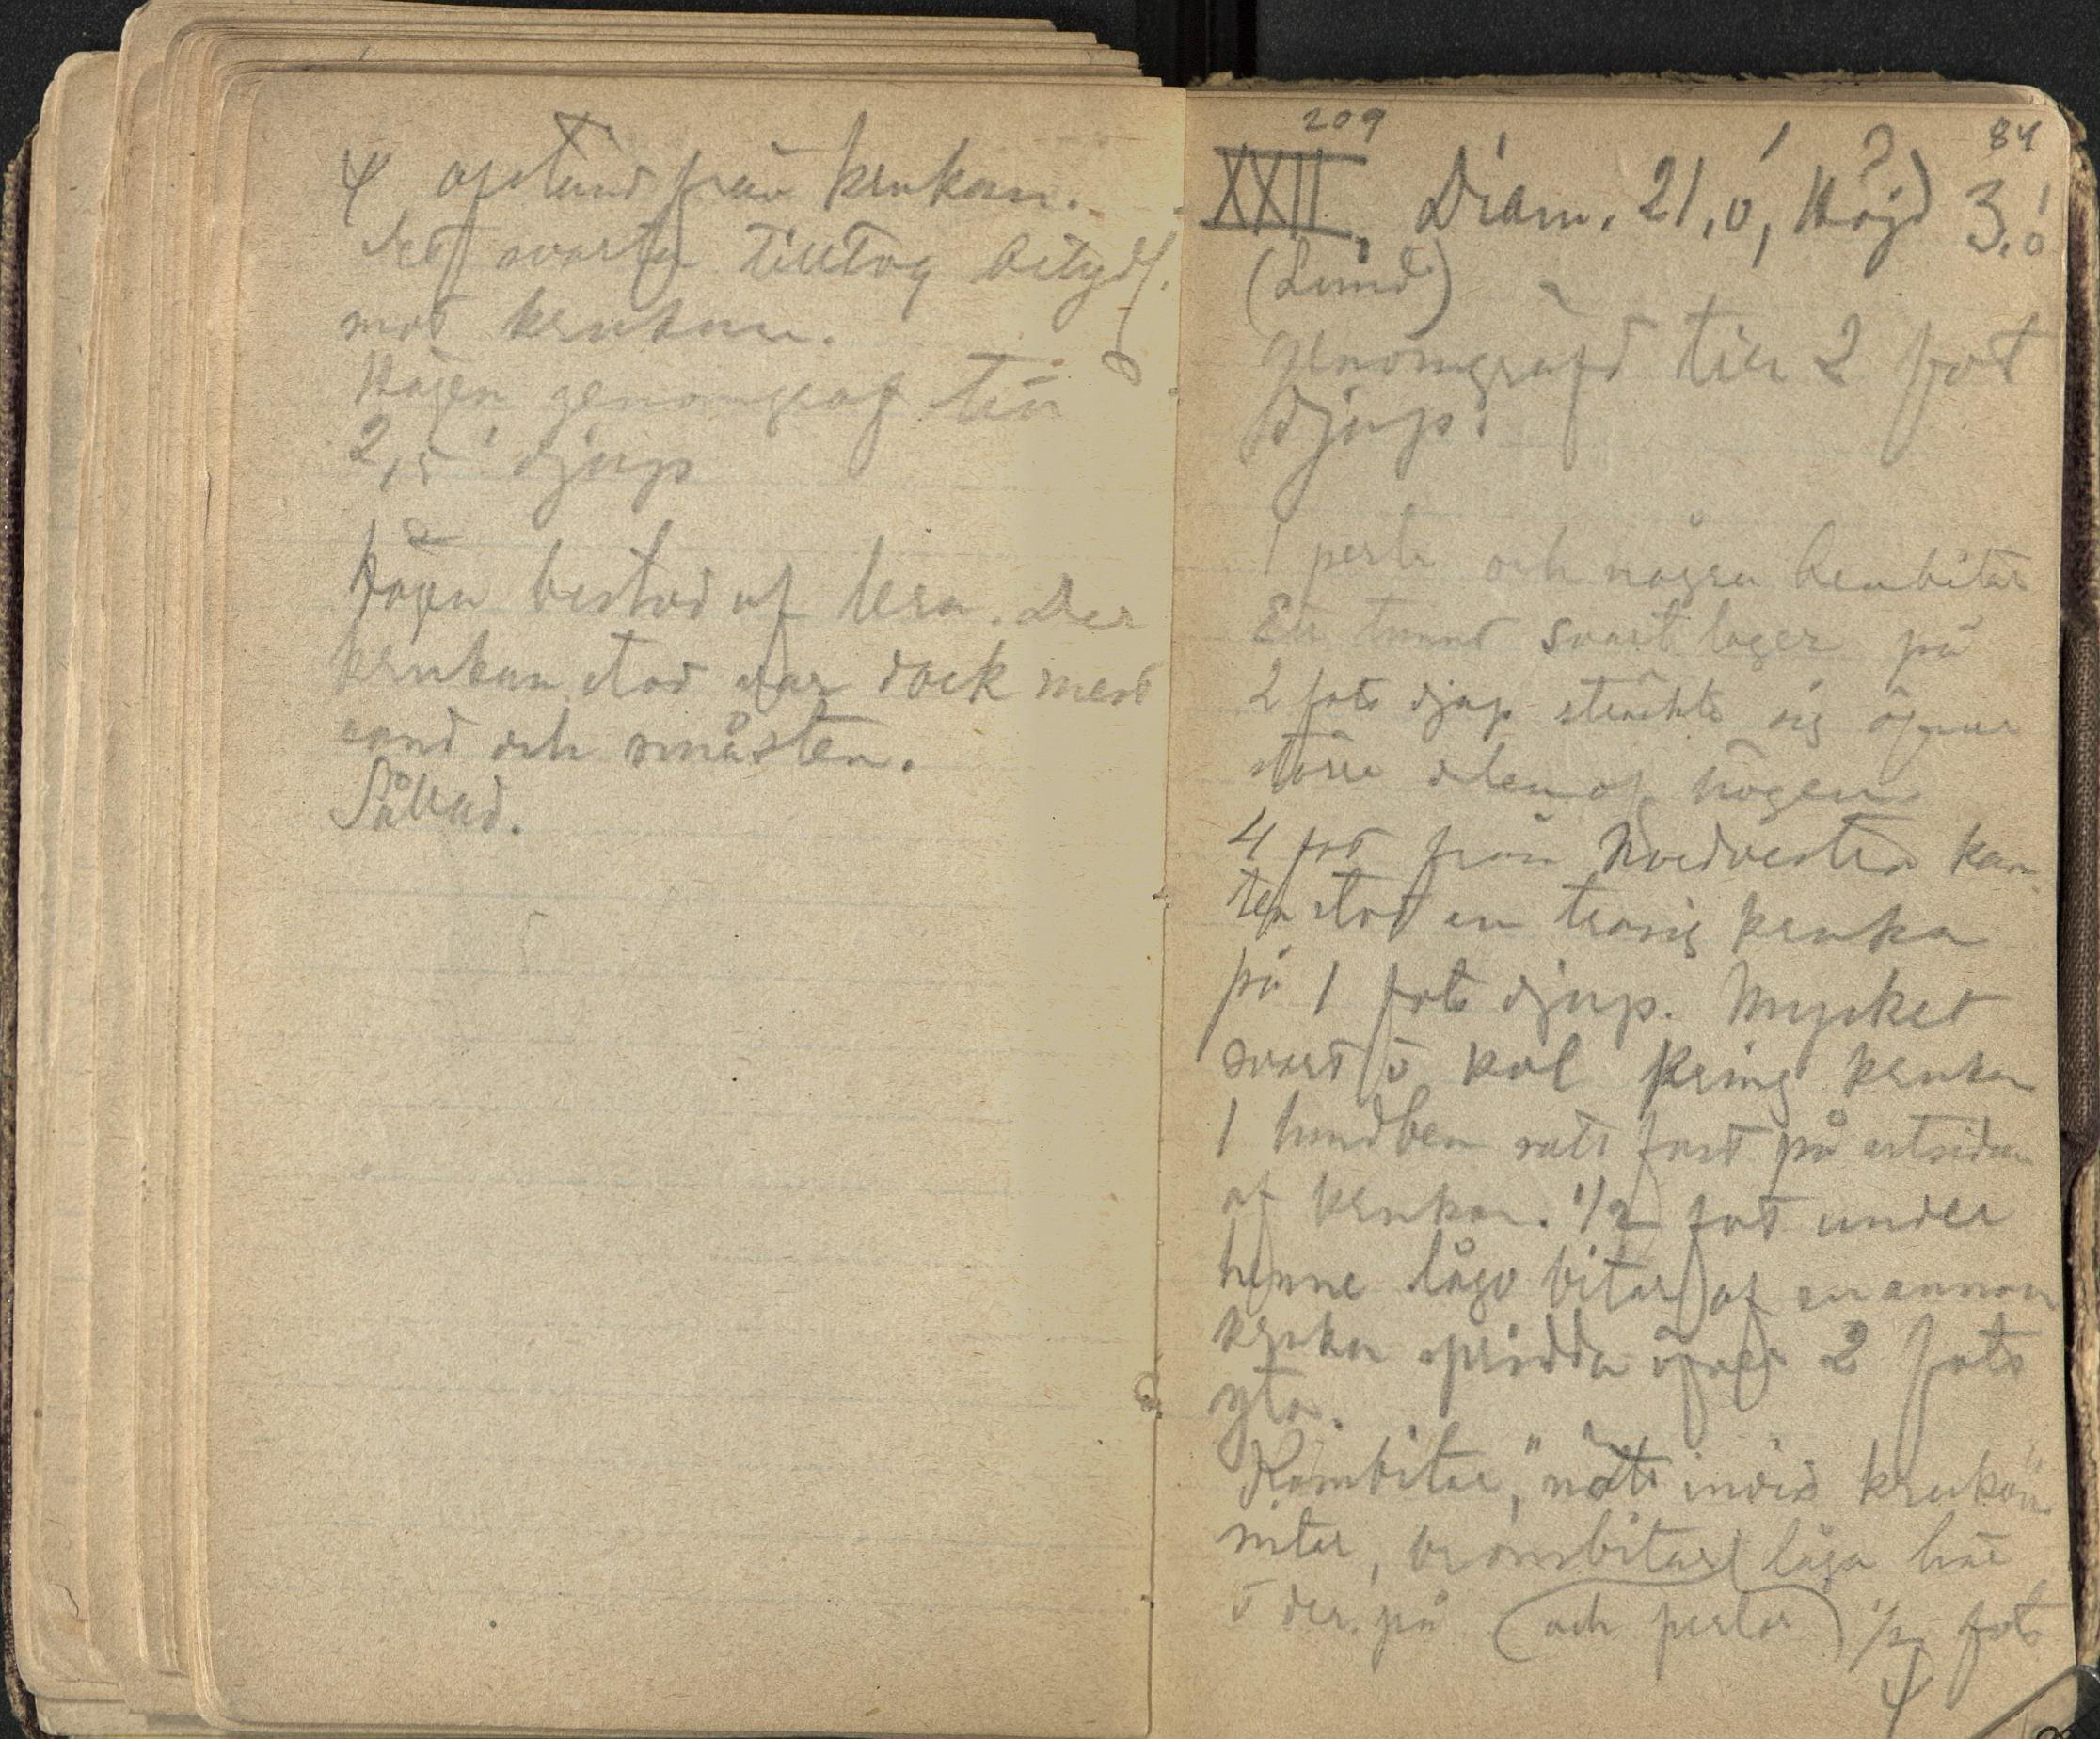 4 afstånd från krukan.
Det svarta tilltog betydl.
mot krukan.
Högen genomgraf till
2,5' djup
Högen bestod af lera. Der
krukan stod var dock med
sand och småsten.
Sållad.
209
84
XXII. Diam. 21,0', Höjd 3,0'
(Lund)
genomgrafd till 2 fot
djup.
1 perla och några benbitar
Ett tunnt svart lager på
2 fots djup sträckte sig öfver
större delen af högen
4 fot från Nordvestra kan-
ten stod en trasig kruka
på 1 fots djup. Mycket
svart o kol kring krukan
1 hundben satt fast på utsidan
af krukan. 1/2 fot under
henne lågo bitar af en annan
kruka spridda öfver 2 fots
yta.
Kambitar, nitar invid krukan
nitar, bronsbitar låga här
o der på (och perlor) 1/2 fots